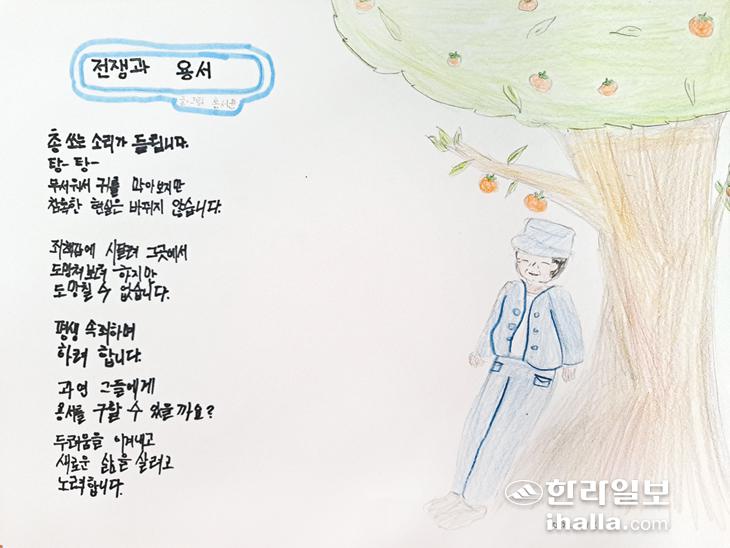 전쟁과 용서
총 쏘는 소리가 들립니다.
탕- 탕-
무서워서 귀를 막아보지만
참혹한 현실은 바뀌지 않습니다.
죄책감에 시달려 그곳에서
도망쳐보려 하지만
도망칠 수 없습니다.
평생 속죄하며
하려 합니다.
과연 그들에게
용서를 구할 수 있을까요?
두려움을 이겨내고
새로운 삶을 살려고
노력합니다.
한라일보
ihalla.com